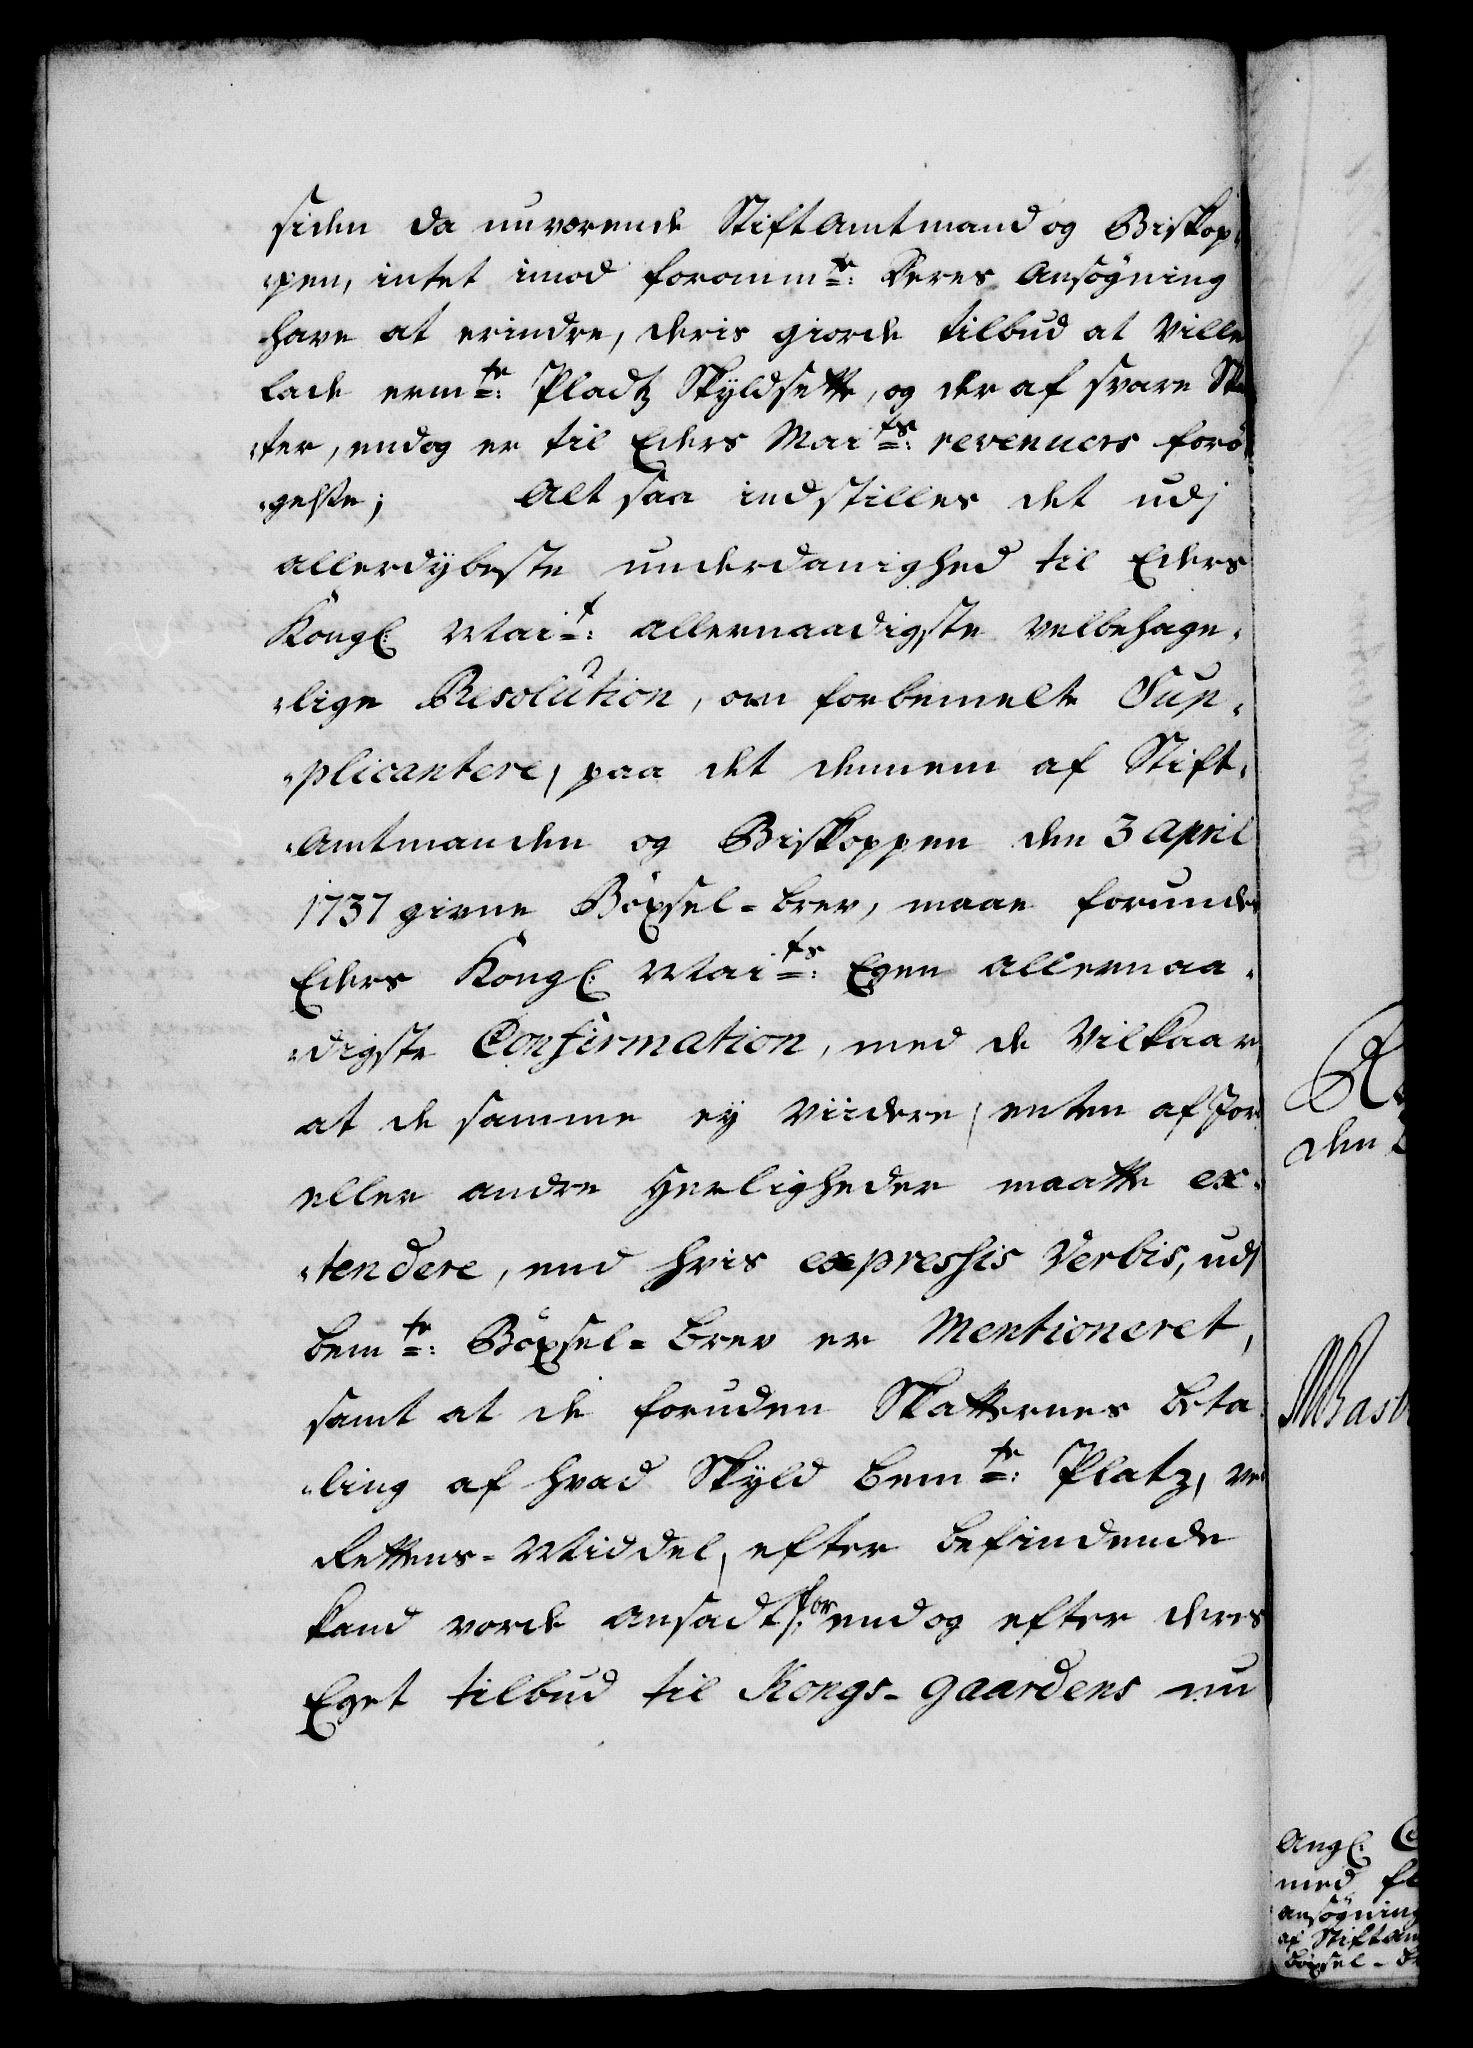 siden da nuværende Stiftamtmand og Biskop-
-pen, intet imod foromm:te Deres Ansøgning
have at erindre, deris giorde tilbud at Ville
lade erm:te Pladtz Skyldsette, og der af svare Ska
-ter, endog er til Eders Mai:ts revenuers forø
-gelse; Alt saa indstilles det udj
allerdybeste underdanighed til Eders
Kongl: Mai:t allernaadigste velbehage-
-lige Resolution, om forbemelte Sup-
-plicantere, paa det dennem af Stift-
-Amtmanden og Biskoppen den 3 April
1737 givne Böxsel-brev, maae forundes
Eders Kongl: Mai:ts Egen allernaa-
-digste Confirmation, med de Vilkaar
at de samme ey Viidere, enten af Jord
eller andre Herligheder maatte ex-
-tendere, end hvis expressis Verbis, udj
bem:te Böxsel-brev er Mentioneret,
samt at de foruden Skatternes beta
-ling af hvad Skyld bem:te Platz, ved
Rettens-Middel, efter befindende
kand vorde ansadt for, endog efter deres
Eget tilbud til Kongs-gaardens nu
den
Angl:
med
ansøgning
af Stiftam
böxsel-b